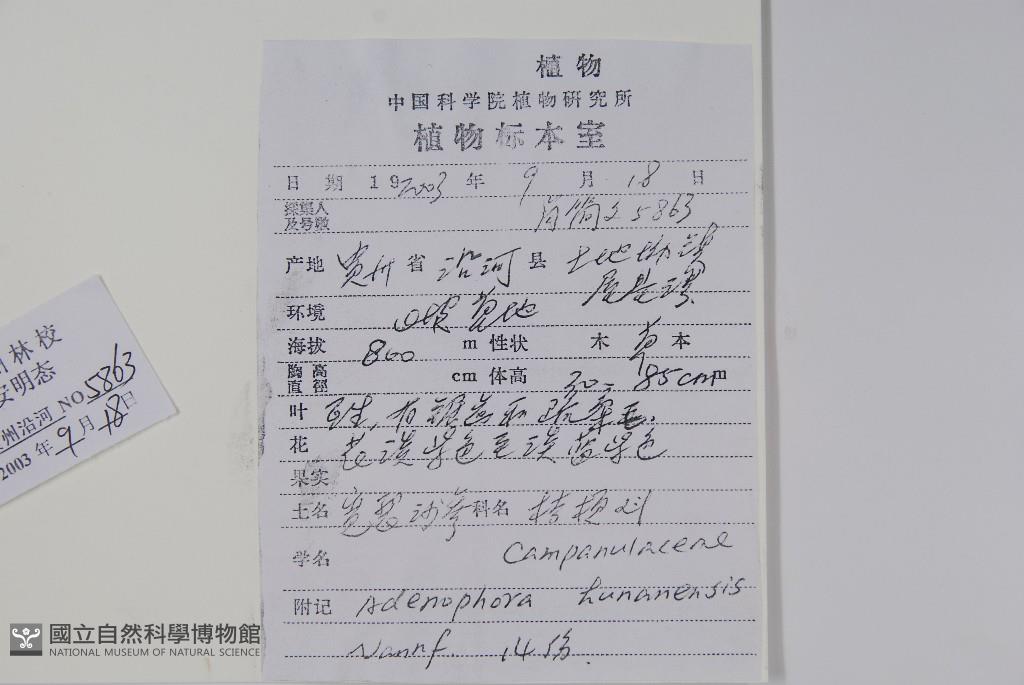 植物
中国科学院植物研究所
植物标本室
日期 19 2003 年 9 月 18 日
採集人
及号数 肖简文 5863
产地 贵州 省 沿河 县 土地坳镇
环境 山坡 草地
海拔 800 m 性状 木 草 本
胸高
直径 cm 体高 30-85cm m
叶 互生,有锯齿和疏柔毛.
花 花淡紫色至淡蓝紫色
果实
土名 宽裂沙参 科名 桔梗科
学名 Campanulaceae
附记 Adenophora hunanensis
Nannf. 14份.
林校
安明态
州沿河 NO 5863
2003 年 9 月 18 日
國立自然科學博物館
NATIONAL MUSEUM OF NATURAL SCIENCE